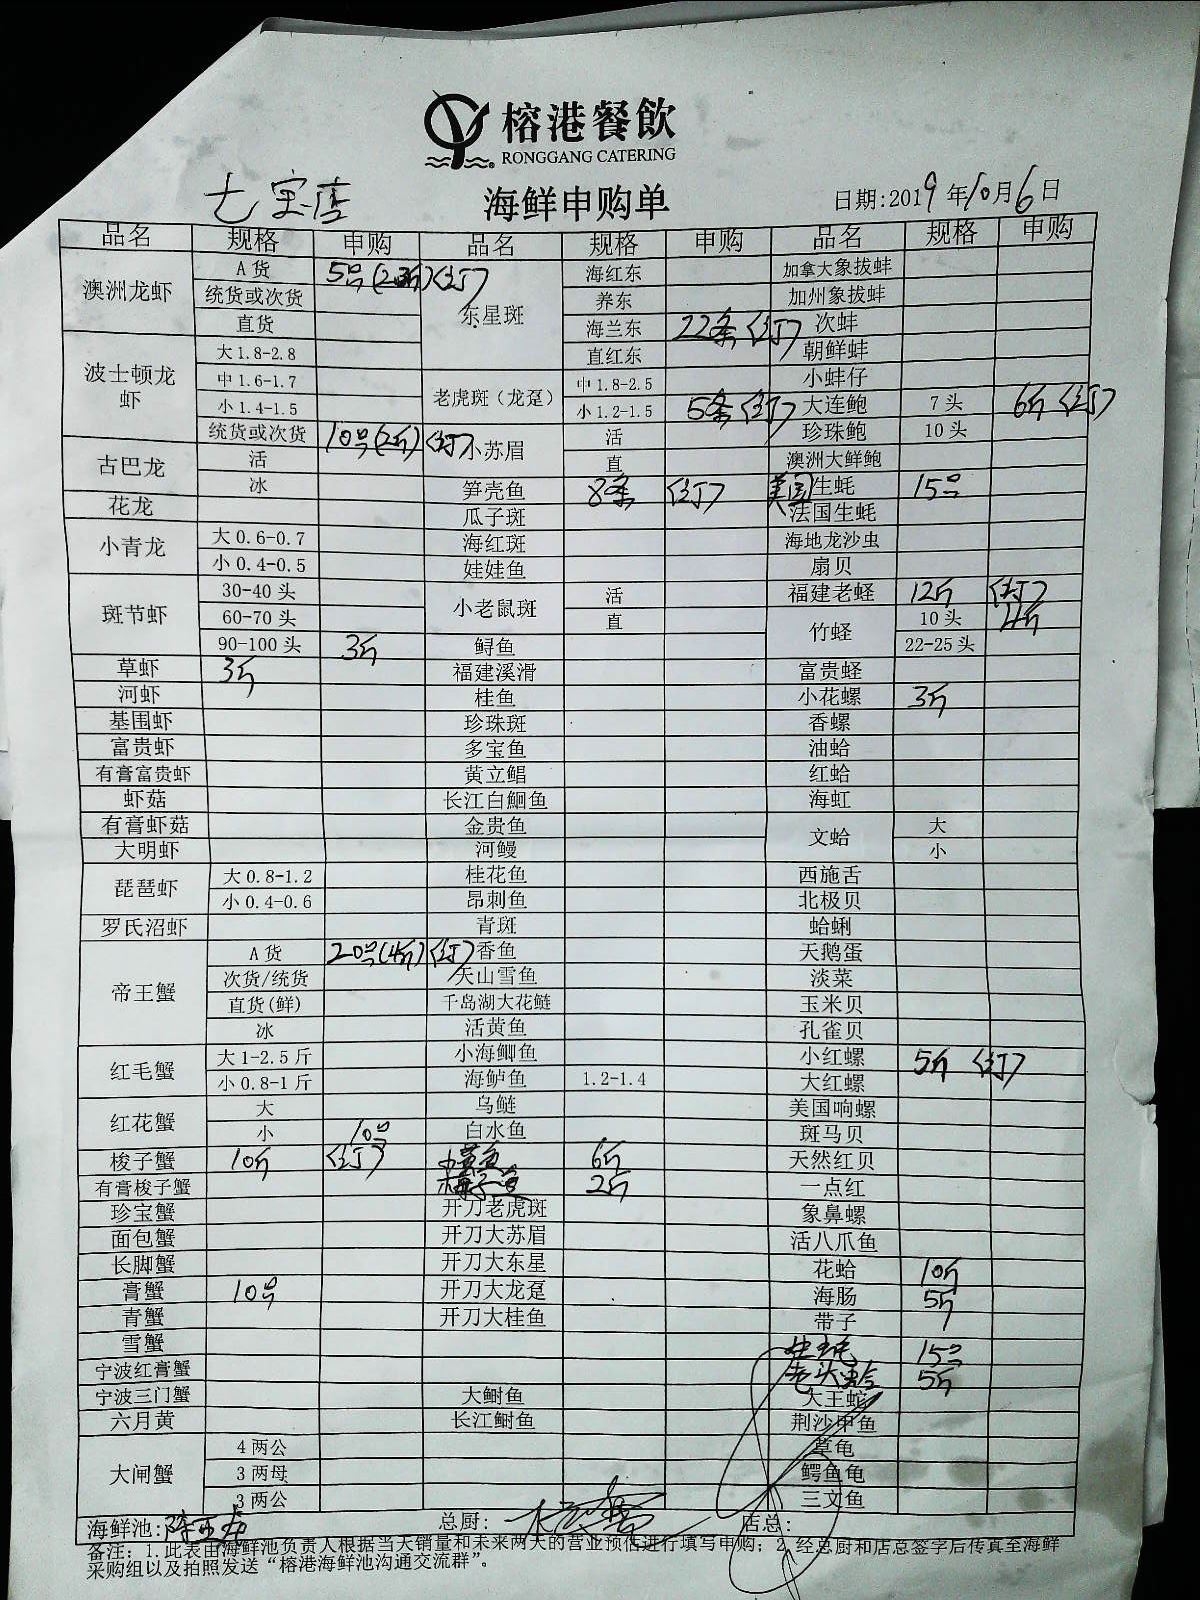 榕港餐飲
RONGGANG CATERING
七宝店 海鲜申购单 日期:2019年10月6日
品名 规格 申购 品名 规格 申购 品名 规格 申购
澳洲龙虾 A货 5号(2斤)(订) 东星斑 海红东 加拿大象拔蚌
统货或次货 养东 加州象拔蚌
直货 海兰东 22条(订) 次蚌
波士顿龙虾 大1.8-2.8 直红东 朝鲜蚌
中1.6-1.7 老虎斑（龙趸） 中1.8-2.5 小蚌仔
小1.4-1.5 小1.2-1.5 5条(订) 大连鲍 7头 6斤(订)
统货或次货 10号(2斤)(订) 小苏眉 活 珍珠鲍 10头
古巴龙 活 直 澳洲大鲜鲍
冰 笋壳鱼 8条 (订) 美国生蚝 15号
花龙 瓜子斑 法国生蚝
小青龙 大0.6-0.7 海红斑 海地龙沙虫
小0.4-0.5 娃娃鱼 扇贝
斑节虾 30-40头 小老鼠斑 活 福建老蛏 12斤 (订)
60-70头 直 竹蛏 10头 4斤
90-100头 3斤 鲟鱼 22-25头
草虾 3斤 福建溪滑 富贵蛏
河虾 桂鱼 小花螺 3斤
基围虾 珍珠斑 香螺
富贵虾 多宝鱼 油蛤
有膏富贵虾 黄立鲳 红蛤
虾菇 长江白鮰鱼 海虹
有膏虾菇 金贵鱼 文蛤 大
大明虾 河鳗 小
琵琶虾 大0.8-1.2 桂花鱼 西施舌
小0.4-0.6 昂刺鱼 北极贝
罗氏沼虾 青斑 蛤蜊
帝王蟹 A货 20号(4斤)(订) 香鱼 天鹅蛋
次货/统货 天山雪鱼 淡菜
直货(鲜) 千岛湖大花鲢 玉米贝
冰 活黄鱼 孔雀贝
红毛蟹 大1-2.5斤 小海鲫鱼 小红螺 5斤 (订)
小0.8-1斤 海鲈鱼 1.2-1.4 大红螺
红花蟹 大 乌鲢 美国响螺
小 10号 白水鱼 斑马贝
梭子蟹 10斤 (订) 小黄鱼 6斤 天然红贝
有膏梭子蟹 梅子鱼 2斤 一点红
珍宝蟹 开刀老虎斑 象鼻螺
面包蟹 开刀大苏眉 活八爪鱼
长脚蟹 开刀大东星 花蛤 10斤
膏蟹 10号 开刀大龙趸 海肠 5斤
青蟹 开刀大桂鱼 带子
雪蟹 生蚝 15号
宁波红膏蟹 5斤
宁波三门蟹 大鲥鱼 大王蛇
六月黄 长江鲥鱼 荆沙甲鱼
大闸蟹 4两公 草龟
3两母 鳄鱼龟
3两公 三文鱼
海鲜池: 总厨: 店总:
备注：1.此表由海鲜池负责人根据当天销量和未来两天的营业预估进行填写申购；2.经总厨和店总签字后传真至海鲜
采购组以及拍照发送“榕港海鲜池沟通交流群”。